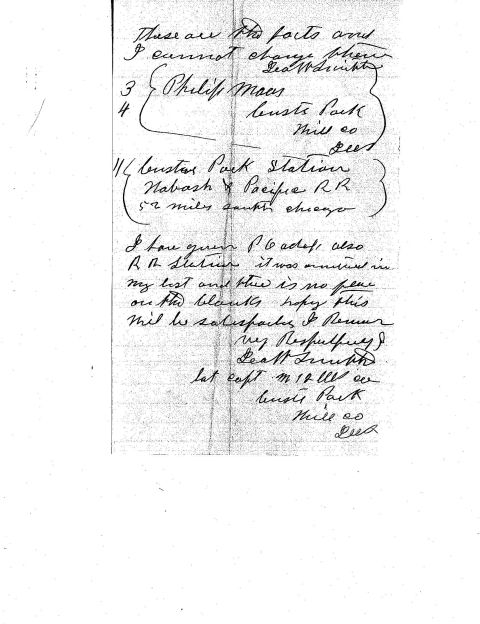 These are the facts and
I cannot change them
Geo W Smith
3 Philip Maas
4 Custer Park
Will co
Ills
4 Custer Park Station
Wabash & Pacific R R
52 miles south chicago
I have given P O address also
R R Station it was omitted in
my last and there is no place
on the blanks hoping this
will be satisfactory I Remain
very Respectfully
Geo W Smith
lat capt co
Custer Park
Will co
Ills